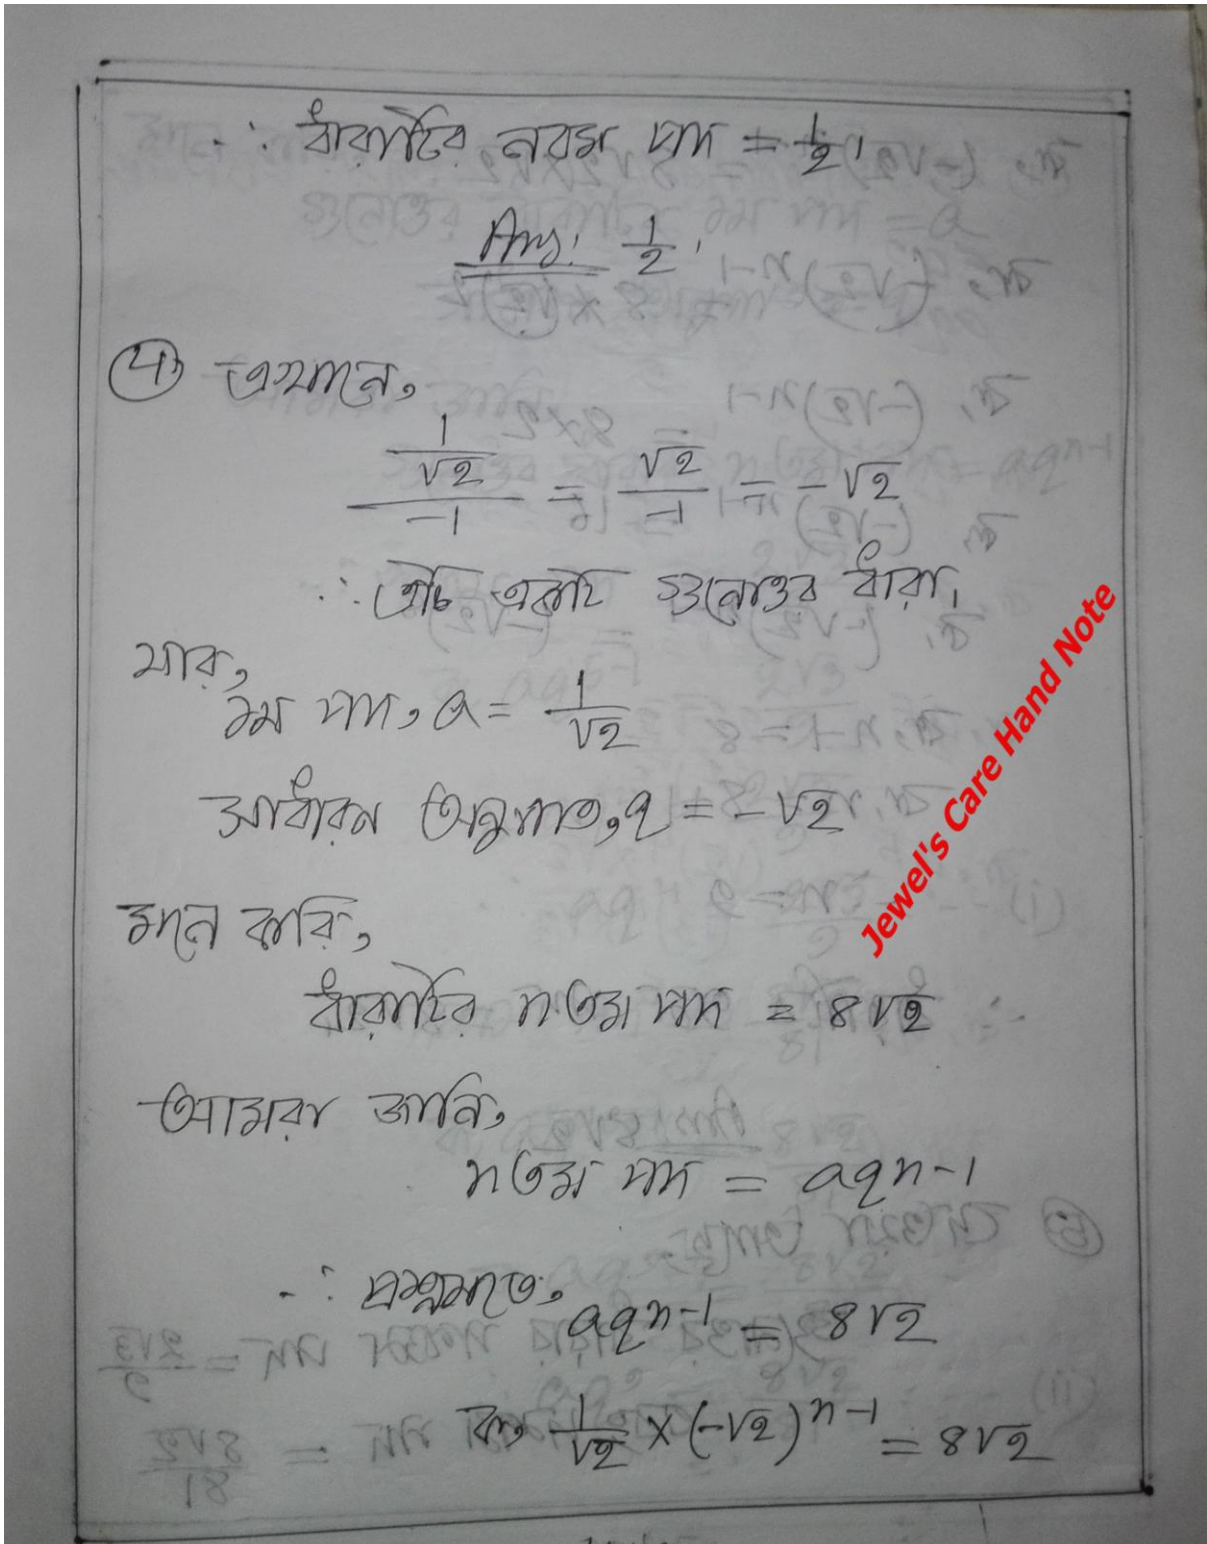 ∴ ধারাটির নবম পদ = 1/2,
Ans: 1/2,
৫) এখানে,
(1/√2)/(-1) = √2/-1 = -√2
∴ এটি একটি গুনোত্তর ধারা,
যার,
১ম পদ, a = 1/√2
সাধারন অনুপাত, q = -√2
মনে করি,
ধারাটির n তম পদ = 8√2
আমরা জানি,
n তম পদ = aqn-1
∴ প্রশ্নমতে,
aq^n-1 = 8√2
বা, 1/√2 × (-√2)^n-1 = 8√2
Jewel's Care Hand Note